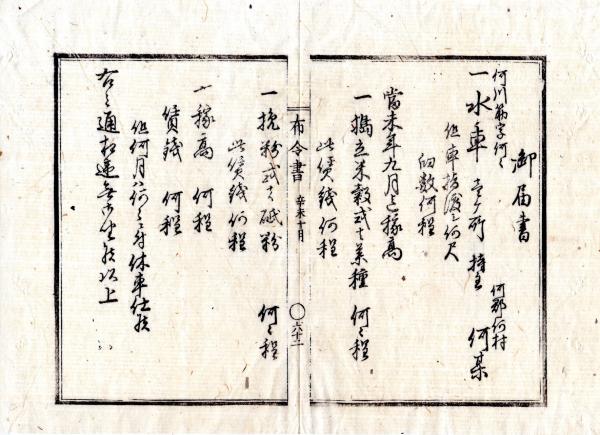 御届書
何郡何村
何川筋字何々
一水車 壱ヶ所 持主 何某
但車指渡シ何尺
臼数何程
當未年九月迄稼高
一搗立米穀或ハ菜種 何々程
此賃錢何程
布令書 辛未十月 六十二
一挽粉或ハ砥粉 何々程
此賃錢何程
一稼高 何程
賃錢 何程
但何月ハ何々ニ付休車仕候
右之通相違無御座候以上